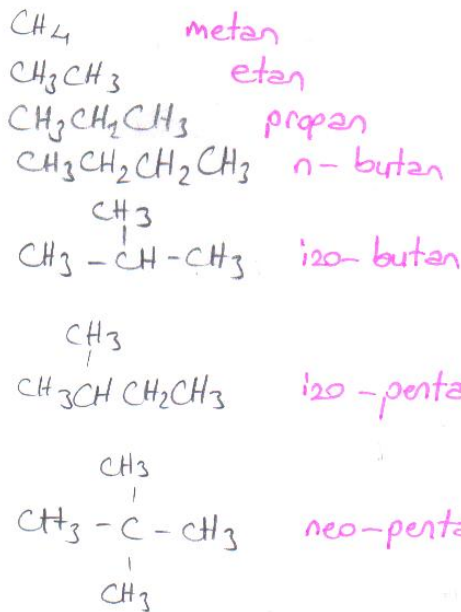 CH4 metan
CH3CH3 etan
CH3CH2CH3 propan
CH3CH2CH2CH3 n-butan
CH3
CH3-CH-CH3 izo-butan
CH3
CH3CHCH2CH3 izo-penta
CH3
CH3-C-CH3 neo-penta
CH3